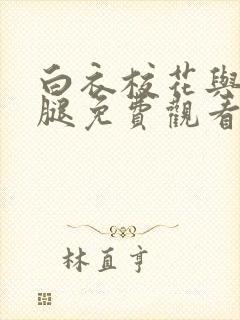 白衣校花與
腿免費觀看
林直亨